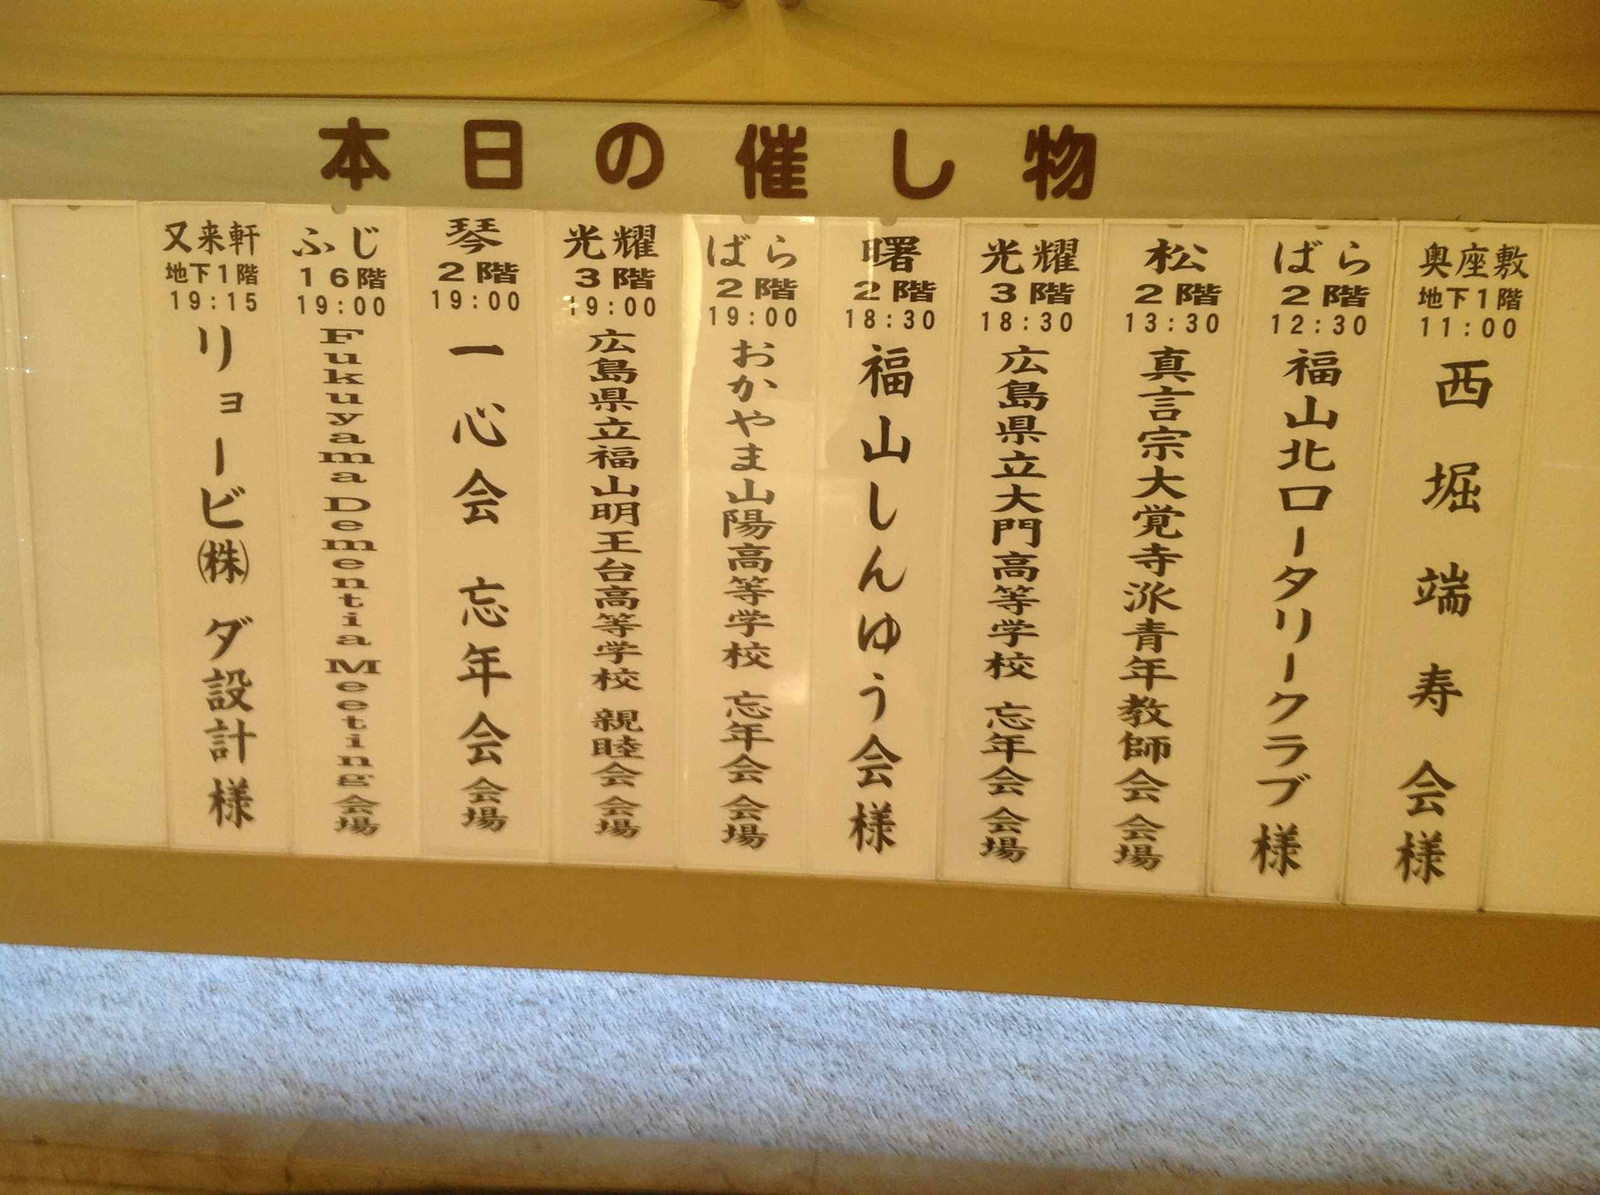 本日の催し物
奥座敷
地下1階
11:00
西堀端寿会様
ばら
2階
12:30
福山北ロータリークラブ様
松
2階
13:30
真言宗大覚寺派青年教師会 会場
光耀
3階
18:30
広島県立大門高等学校 忘年会 会場
曙
2階
18:30
福山しんゆう会様
ばら
2階
19:00
おかやま山陽高等学校 忘年会 会場
光耀
3階
19:00
広島県立福山明王台高等学校 親睦会 会場
琴
2階
19:00
一心会 忘年会 会場
ふじ
16階
19:00
Fukuyama Dementia Meeting 会場
又来軒
地下1階
19:15
リョービ㈱ ダ設計様